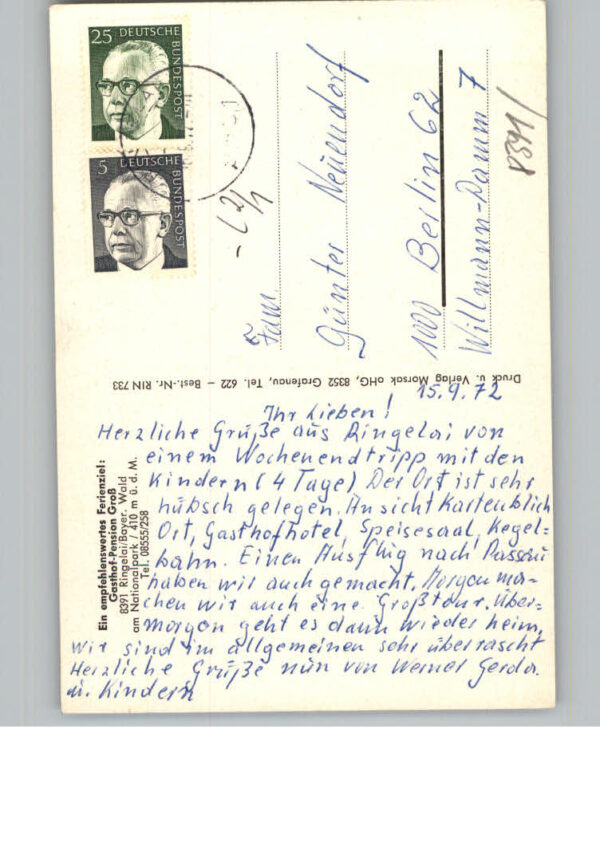 25 DEUTSCHE
BUNDESPOST
5 DEUTSCHE
BUNDESPOST
Fam.
Günter Neuendorf
1000 Berlin 62
Willmann-Damm 7
8391/
Druck u. Verlag Morsak oHG, 8352 Grafenau, Tel. 622 – Best.-Nr. RIN 733
Ein empfehlenswertes Ferienziel:
Gasthof-Pension Groß
8391 Ringelai/Bayer. Wald
am Nationalpark / 410 m ü. d. M.
Tel. 08555/258
15.9.72
Ihr Lieben!
Herzliche Grüße aus Ringelai von
einem Wochenendtripp mit den
Kindern (4 Tage) Der Ort ist sehr
hübsch gelegen. Ansicht Kartenblick
Ort, Gasthofhotel, Speisesaal, Kegel=
bahn. Einen Ausflug nach Passau
haben wir auch gemacht. Morgen ma-
chen wir auch eine Großtour. Über-
morgen geht es dann wieder heim.
Wir sind im allgemeinen sehr überrascht
Herzliche Grüße nun von Werner Gerda.
u. Kindern